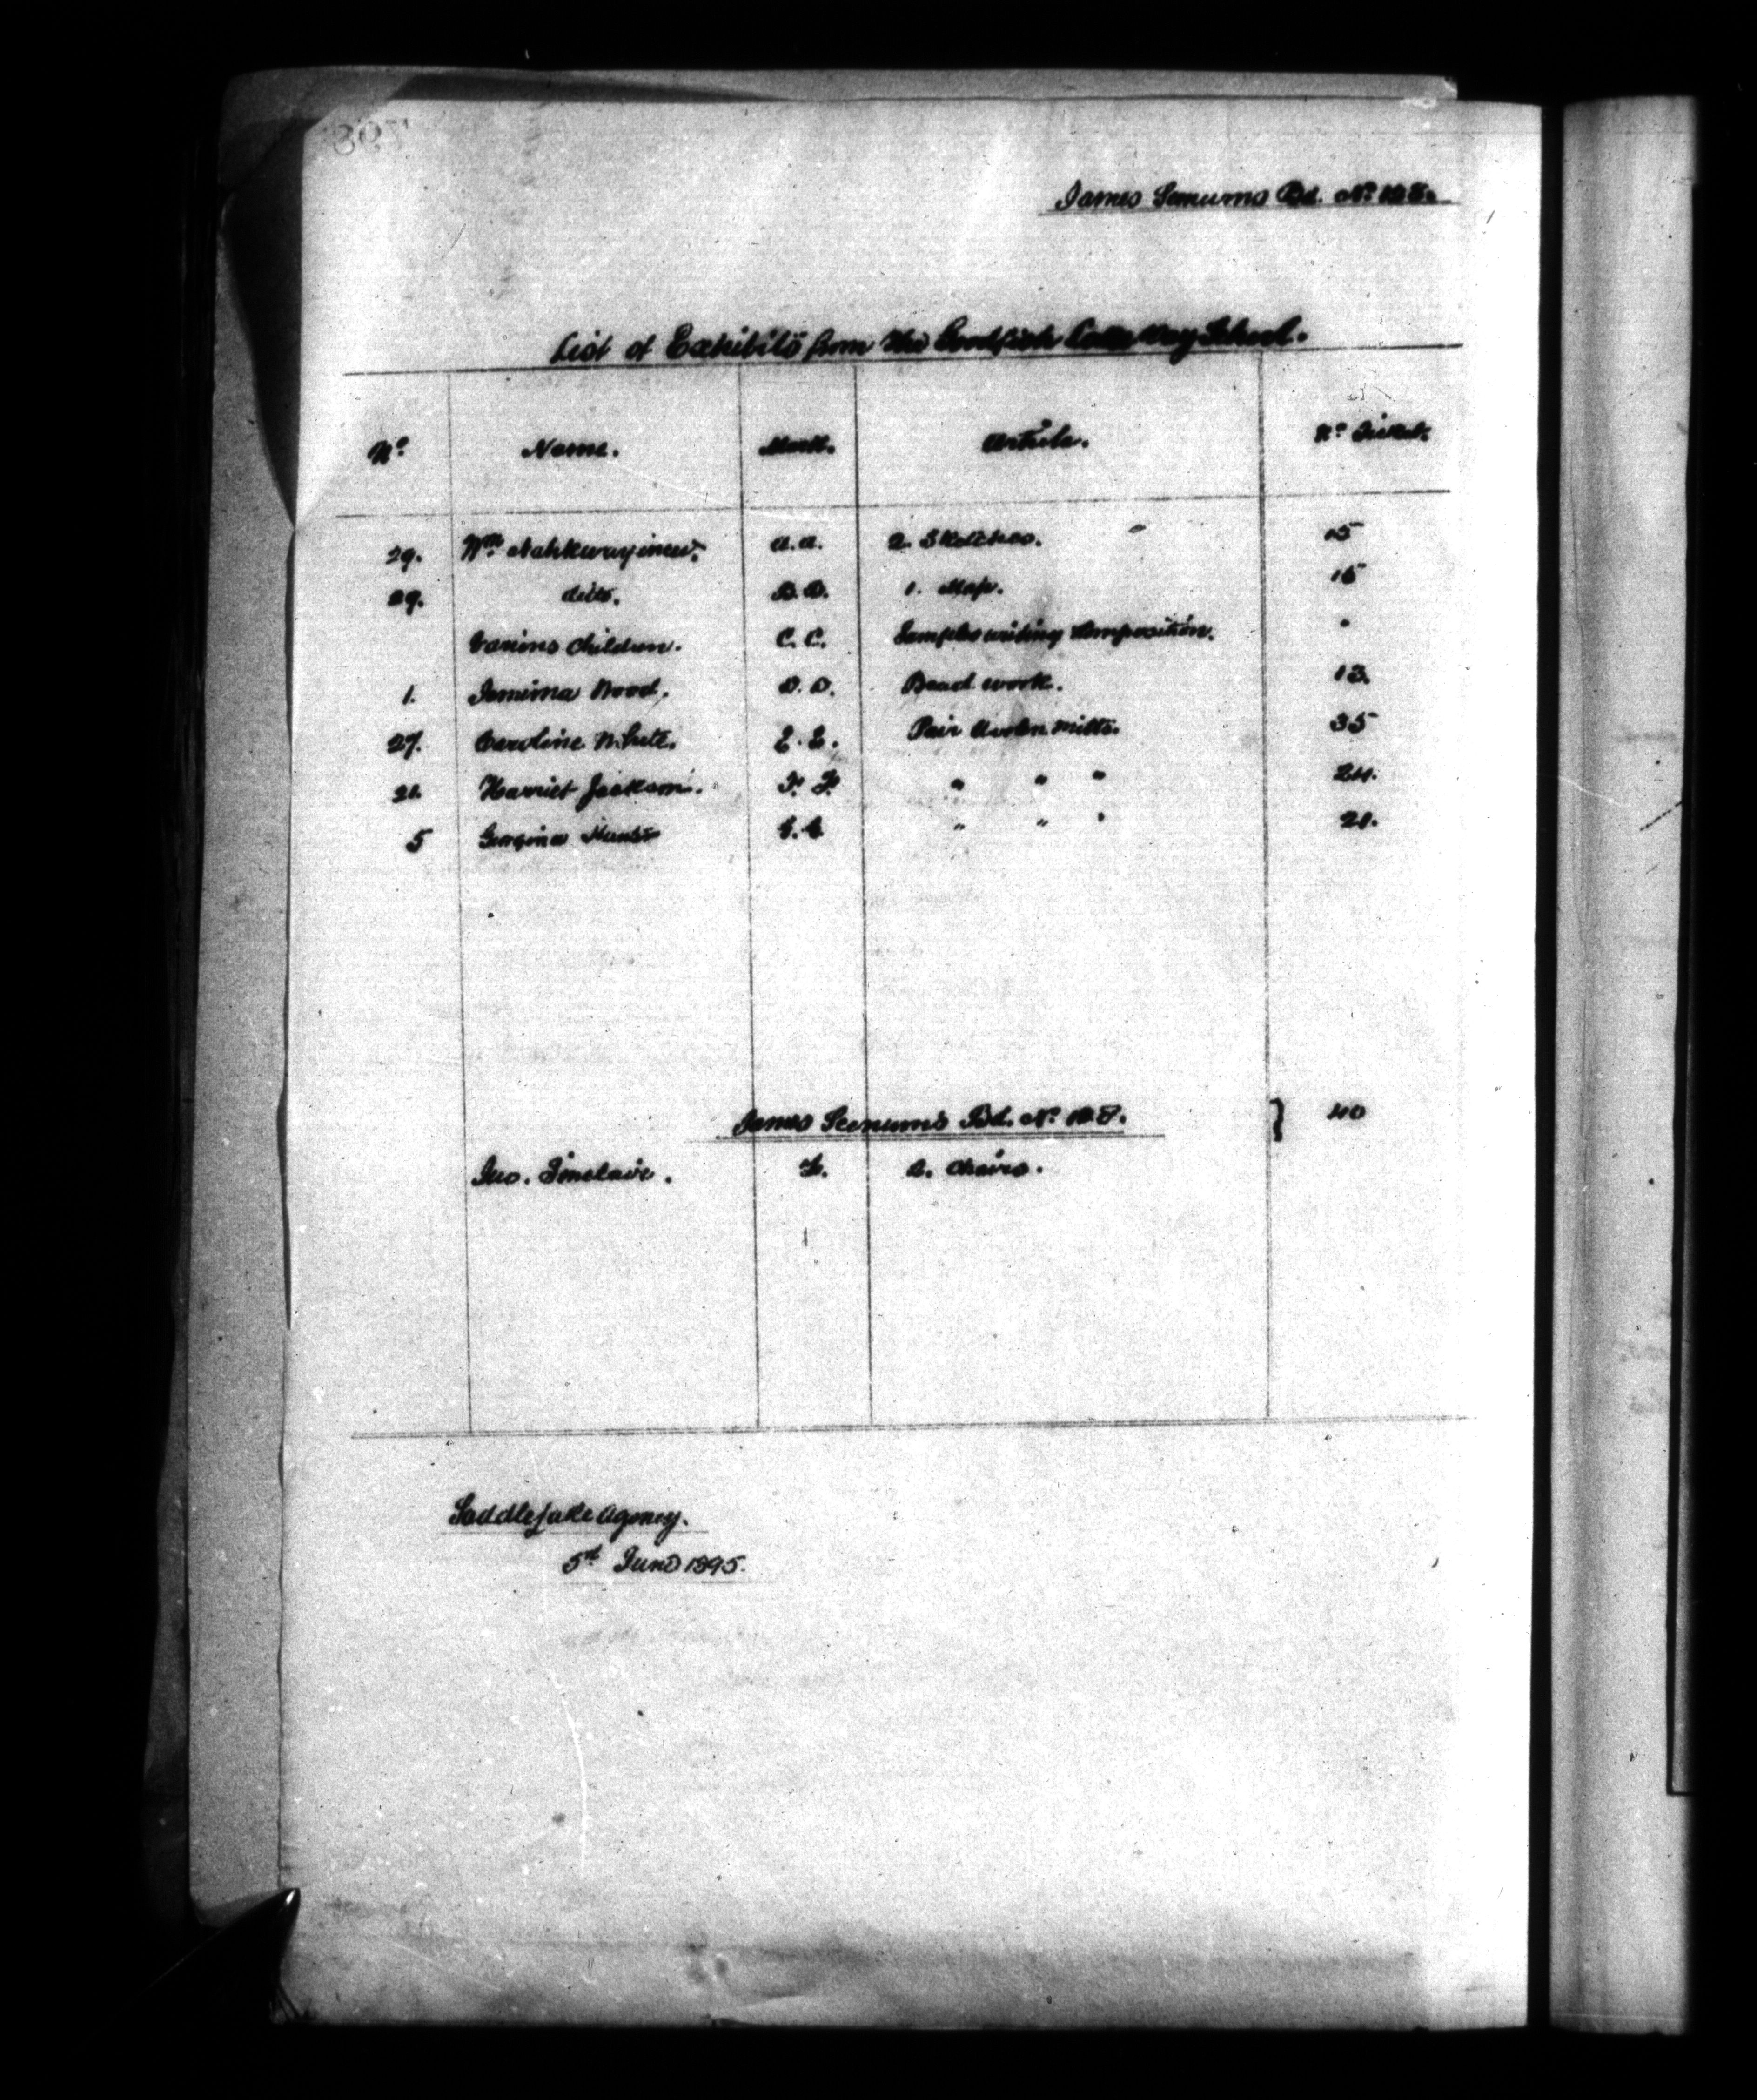 James Seenums Bd. No. 128.
List of Exhibits from the Goodfish Lake Day School.
No. Name. Mark. Article. No. Ticket.
29. Wm. Nahkwayinew. A.A. 2. Sketches. 15
29. ditto. B.B. 1. Map. 15
Various Children. C.C. Samples writing Composition. "
1. Jemima Wood. D.D. Bead work. 13.
27. Caroline White. E.E. Pair Woolen Mitts. 35
21. Harriet Jackson. F.F. " " " 24.
5 Georgina Hunter G.G " " " 21.
James Seenum's Bd. No. 128. } 40
Jno. Sinclair. 2. Chairs.
Saddle Lake Agency.
5th June 1895.